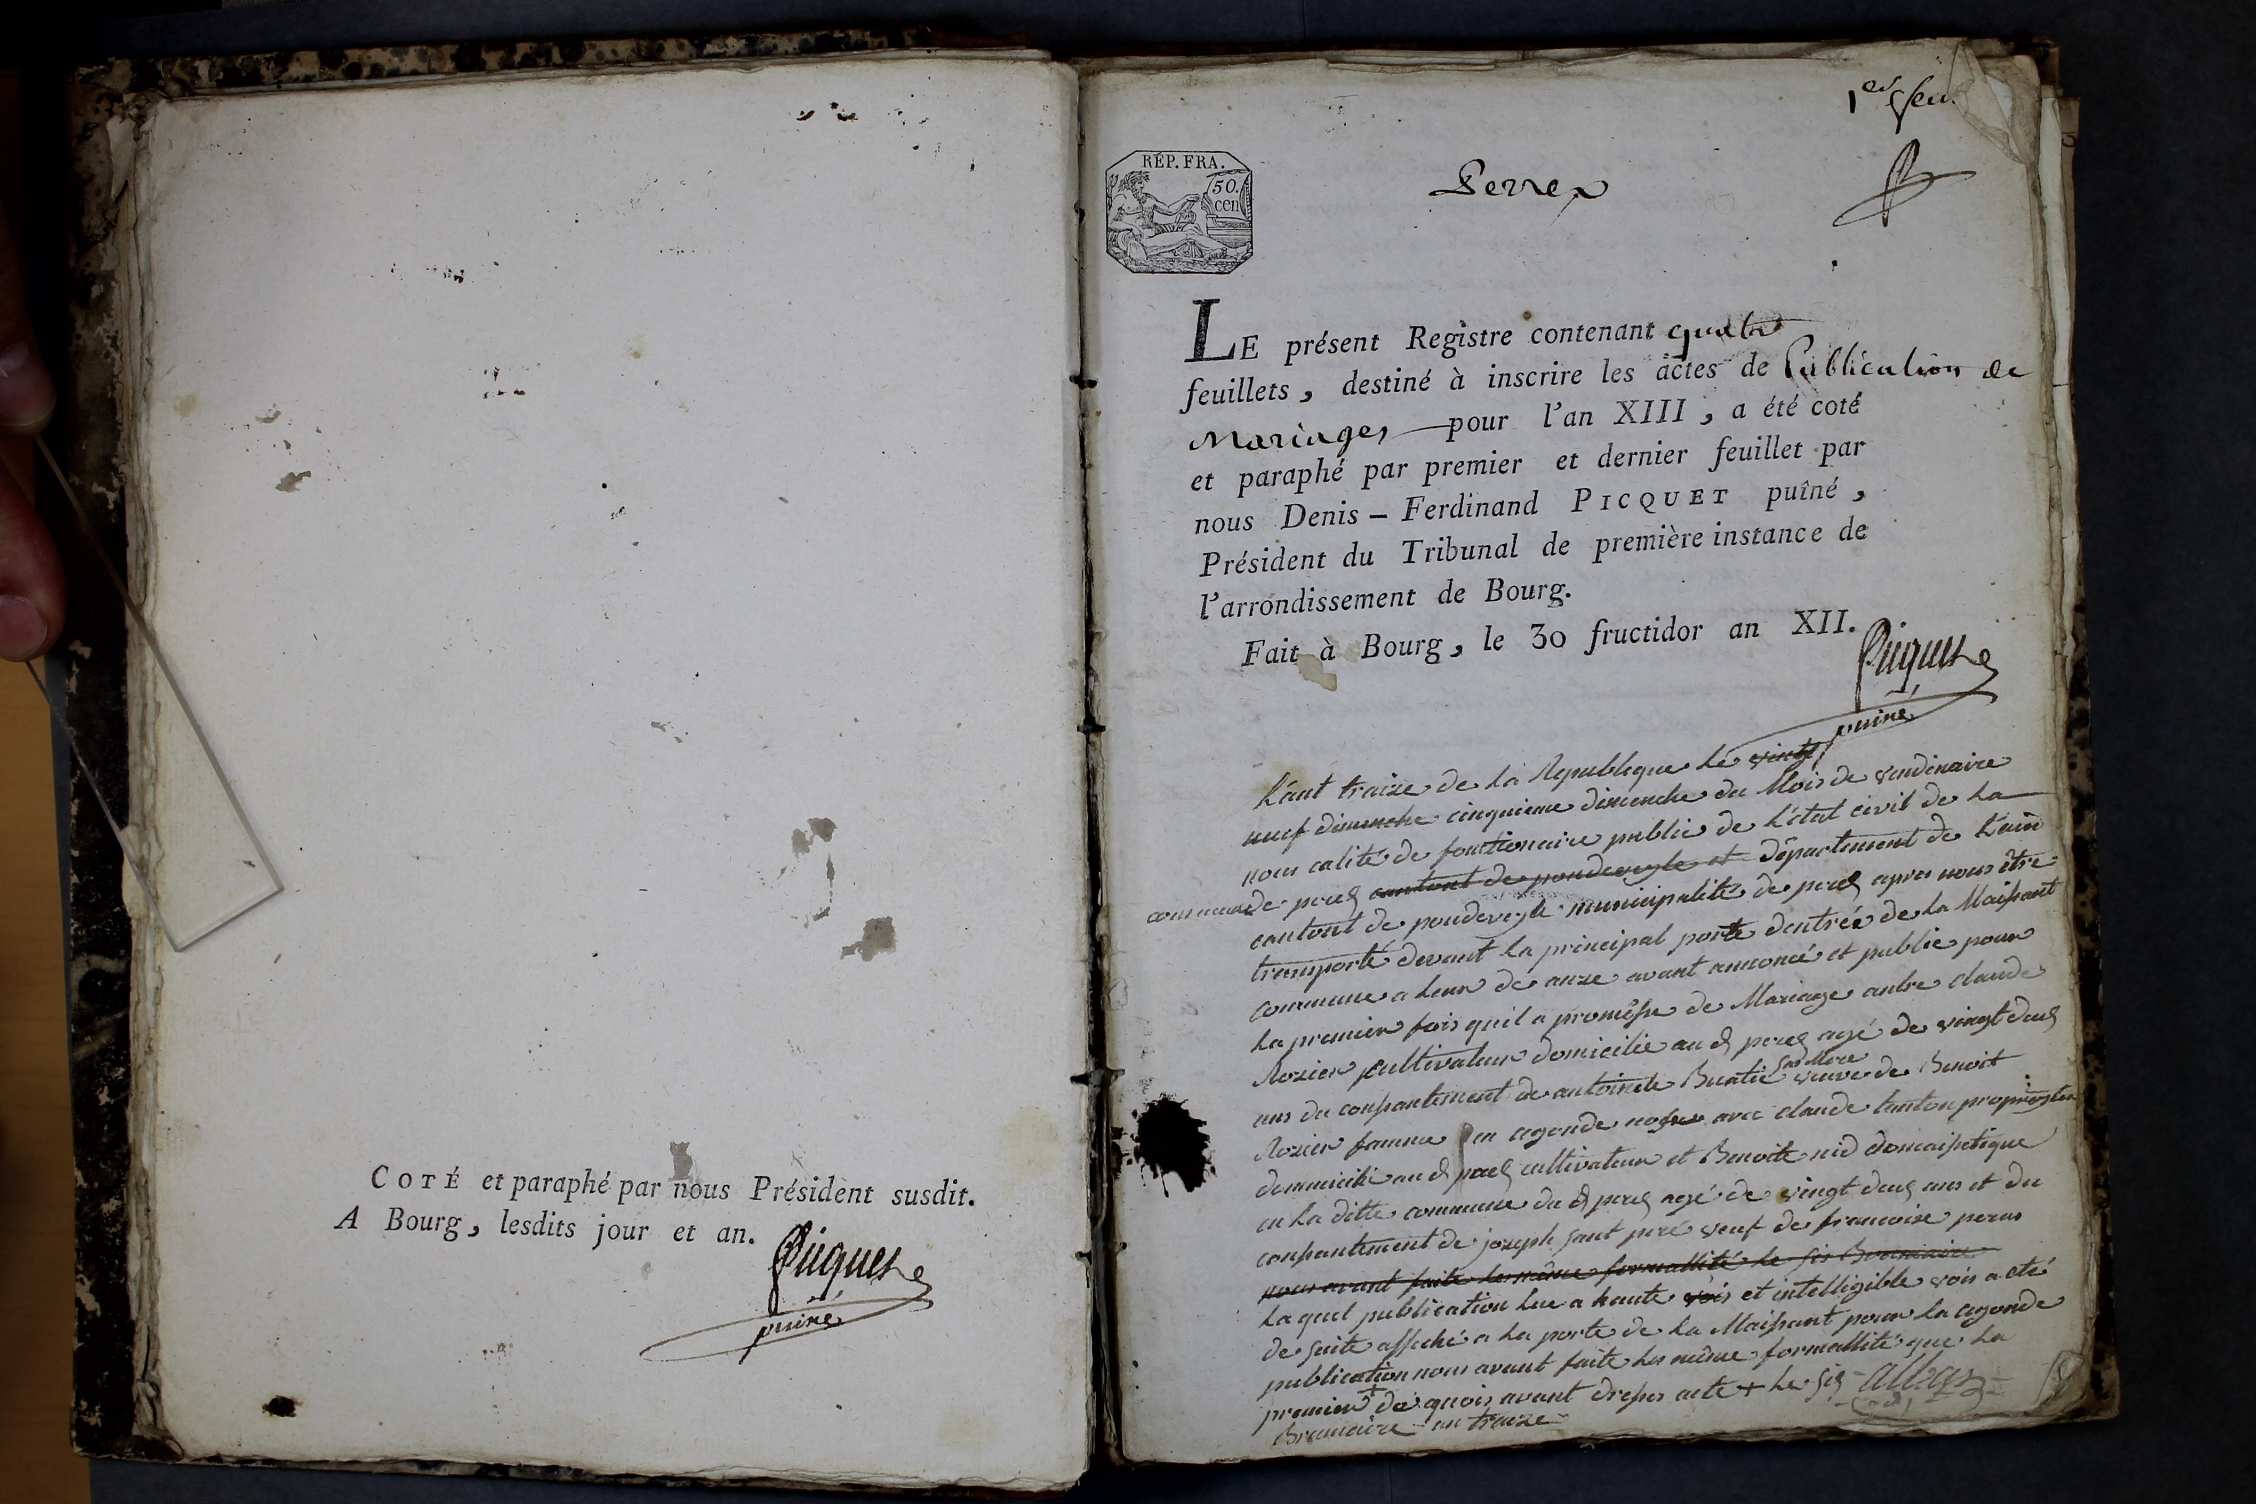 COTÉ et paraphé par nous Président susdit.
A Bourg, lesdits jour et an.
Picquet
puiné
1er feu
RÉP. FRA.
50.
cen
Perrex
LE présent Registre contenant quatre
feuillets, destiné à inscrire les actes de Publication de
Mariages pour l'an XIII, a été coté
et paraphé par premier et dernier feuillet par
nous Denis-Ferdinand PICQUET puîné,
Président du Tribunal de première instance de
l'arrondissement de Bourg.
Fait à Bourg, le 30 fructidor an XII.
Picquet
puiné
L'ant traize de la Republique le vingt
neuf dimanche cinquieme dimenche du Mois de vendemaire
nous calité de fonctionaire public de l'état civil de la
commune de perex cantont de pondeveyle et departement de l'ain
cantont de pondeveyle municipalité de perex apres nous être
transporté devant la principal porte dentrée de la Maisont
commune a leur de onze avant annoncé et publie pour
la premier fois quil a promesse de Mariage antre claude
Rozier cultivateur domicilie au d perex agé de vingt deux
ans du consantement de antoinete Buatie sa Mere veuve de Benoit
Rozier famme en cegonde nosse avec claude tanton propriegtere
dommicilié au d perex cultivateur et Benoite nid domaisetique
en la ditte commune du d perex agé de vingt deux ans et du
consantement de joseph sont peré veuf de francoise perus
nous avant faite les même formallité le sis Brumaire
la quel publication lue a haute vois et intelligible vois a eté
de suite affiché a la porte de la Maisont pour la cegonde
publication nous avant faite les même formallité que la
premier de quois avant dresser acte + le sis
Brumaire an traize